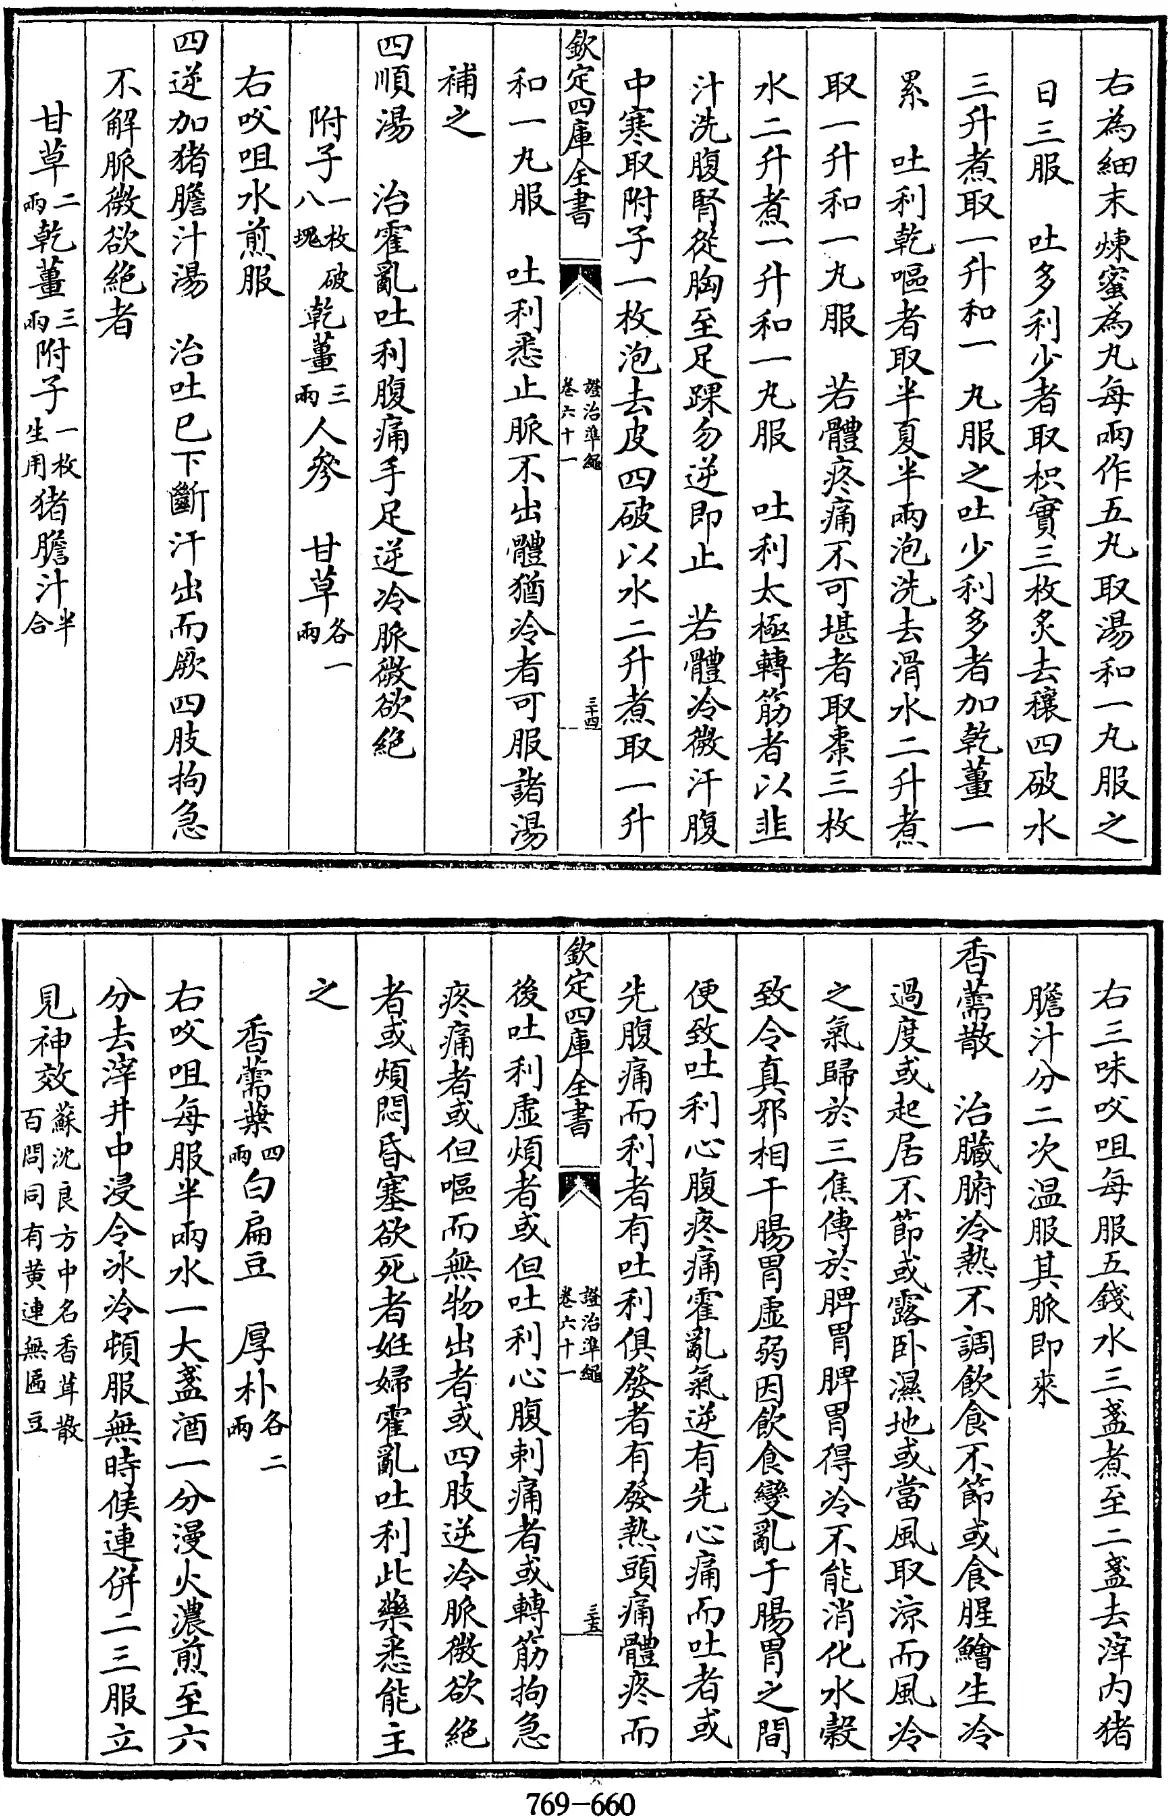 右為細末煉蜜為丸每兩作五丸取湯和一丸服之
日三服　吐多利少者取枳實三枚炙去穰四破水
三升煮取一升和一　丸服之吐少利多者加乾薑一
累　吐利乾嘔者取半夏半兩泡洗去滑水二升煮
取一升和一丸服　若體疼痛不可堪者取棗三枚
水二升煮一升和一丸服　吐利太極轉筋者以韭
汁洗腹腎從胸至足踝勿逆即止　若體冷微汗腹
中寒取附子一枚泡去皮四破以水二升煮取一升
欽定四庫全書　證治準繩卷六十一　三十四
和一丸服　吐利悉止脈不出體猶冷者可服諸湯
補之
四順湯　治霍亂吐利腹痛手足逆冷脈微欲絕
附子一枚破八塊　乾薑三兩　人參　甘草各一兩
右㕮咀水煎服
四逆加猪膽汁湯　治吐已下斷汗出而厥四肢拘急
不解脈微欲絕者
甘草二兩　乾薑三兩　附子一枚生用　猪膽汁半合
右三味㕮咀每服五錢水三盞煮至二盞去滓内猪
膽汁分二次温服其脈即來
香薷散　治臟腑冷熱不調飲食不節或食腥鱠生冷
過度或起居不節或露卧濕地或當風取涼而風冷
之氣歸於三焦傳於脾胃脾胃得冷不能消化水穀
致令真邪相干腸胃虛弱因飲食變亂于腸胃之間
便致吐利心腹疼痛霍亂氣逆有先心痛而吐者或
先腹痛而利者有吐利俱發者有發熱頭痛體疼而
欽定四庫全書　證治準繩卷六十一　三十五
後吐利虛煩者或但吐利心腹刺痛者或轉筋拘急
疼痛者或但嘔而無物出者或四肢逆冷脈微欲絕
者或煩悶昏塞欲死者姙婦霍亂吐利此藥悉能主
之
香薷葉四兩　白扁豆　厚朴各二兩
右㕮咀每服半兩水一大盞酒一分漫火濃煎至六
分去滓井中浸令冰冷頓服無時候連併二三服立
見神效蘇沈良方中名香茸散百問同有黄連無匾豆
769-660